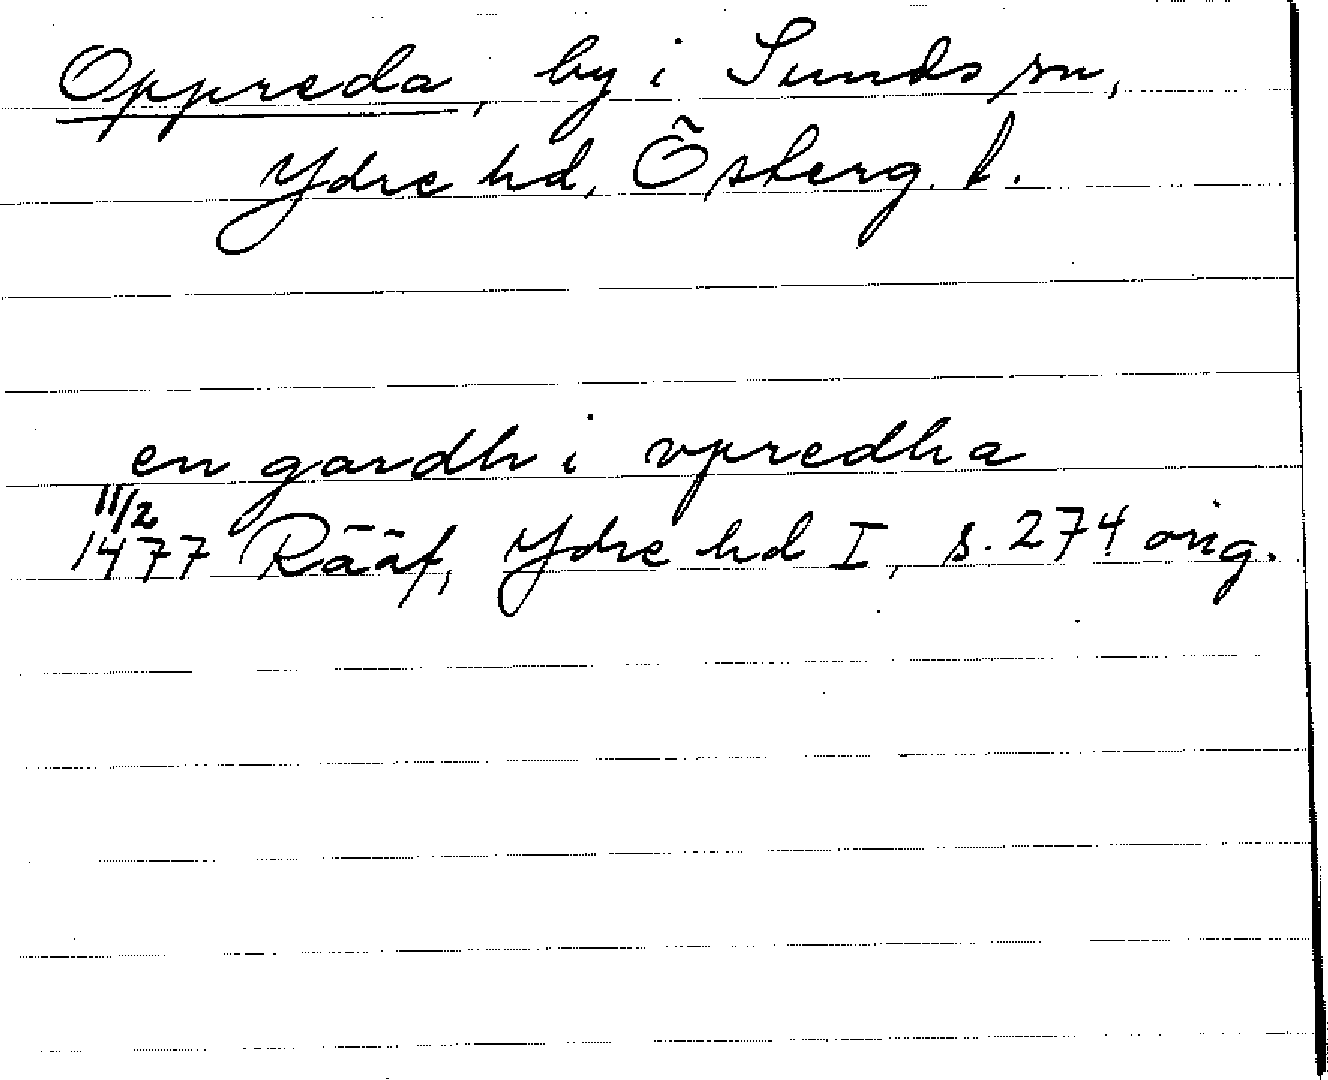 Oppreda, by i Sunds sn,
Ydre hd, Österg. l.
en gardh i vpredha
11/2
1477 Rääf, Ydre hd I, s. 274 orig.